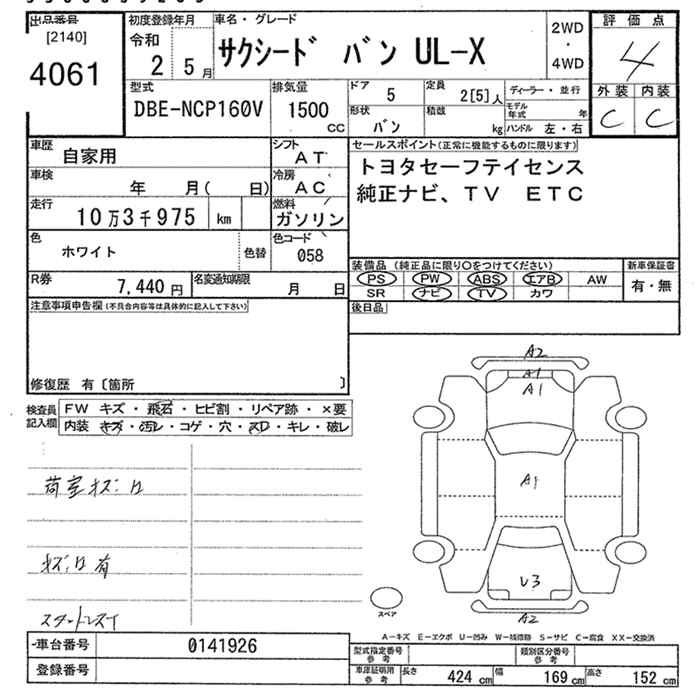 出品番号
[2140]
4061
初度登録年月
令和
2 5月
車名・グレード
サクシード バン UL-X
2WD
・
4WD
評価点
4
外装 内装
C C
型式
DBE-NCP160V
排気量
1500
cc
ドア
5
定員
2[5]人
形状
バン
積載
kg
ディーラー・並行
モデル年式 年
ハンドル 左・右
車歴
自家用
シフト
AT
車検
年 月( 日)
冷房
AC
走行
10万3千975 km
燃料
ガソリン
色
ホワイト
色替
色コード
058
R券
7,440円
名変通知期限
月 日
セールスポイント(正常に機能するものに限ります)
トヨタセーフテイセンス
純正ナビ、TV ETC
装備品 (純正品に限り○をつけてください)
PS PW ABS エアB AW
SR ナビ TV カワ
新車保証書
有・無
後日品
注意事項申告欄(不具合内容等は具体的に記入して下さい)
修復歴 有〔箇所 〕
検査員
記入欄
FW キズ・飛石・ヒビ割・リペア跡・×要
内装 キズ・汚レ・コゲ・穴・スレ・キレ・破レ
荷室キズ凹
キズ凹有
スタートレスイ
A2
A1
A1
A1
U3
A2
スペア
A-キズ E-エクボ U-凹み W-補修跡 S-サビ C-腐食 XX-交換済
車台番号
0141926
登録番号
型式指定番号
参考
類別区分番号
参考
車庫証明用
参考
長さ
424cm
幅
169cm
高さ
152cm